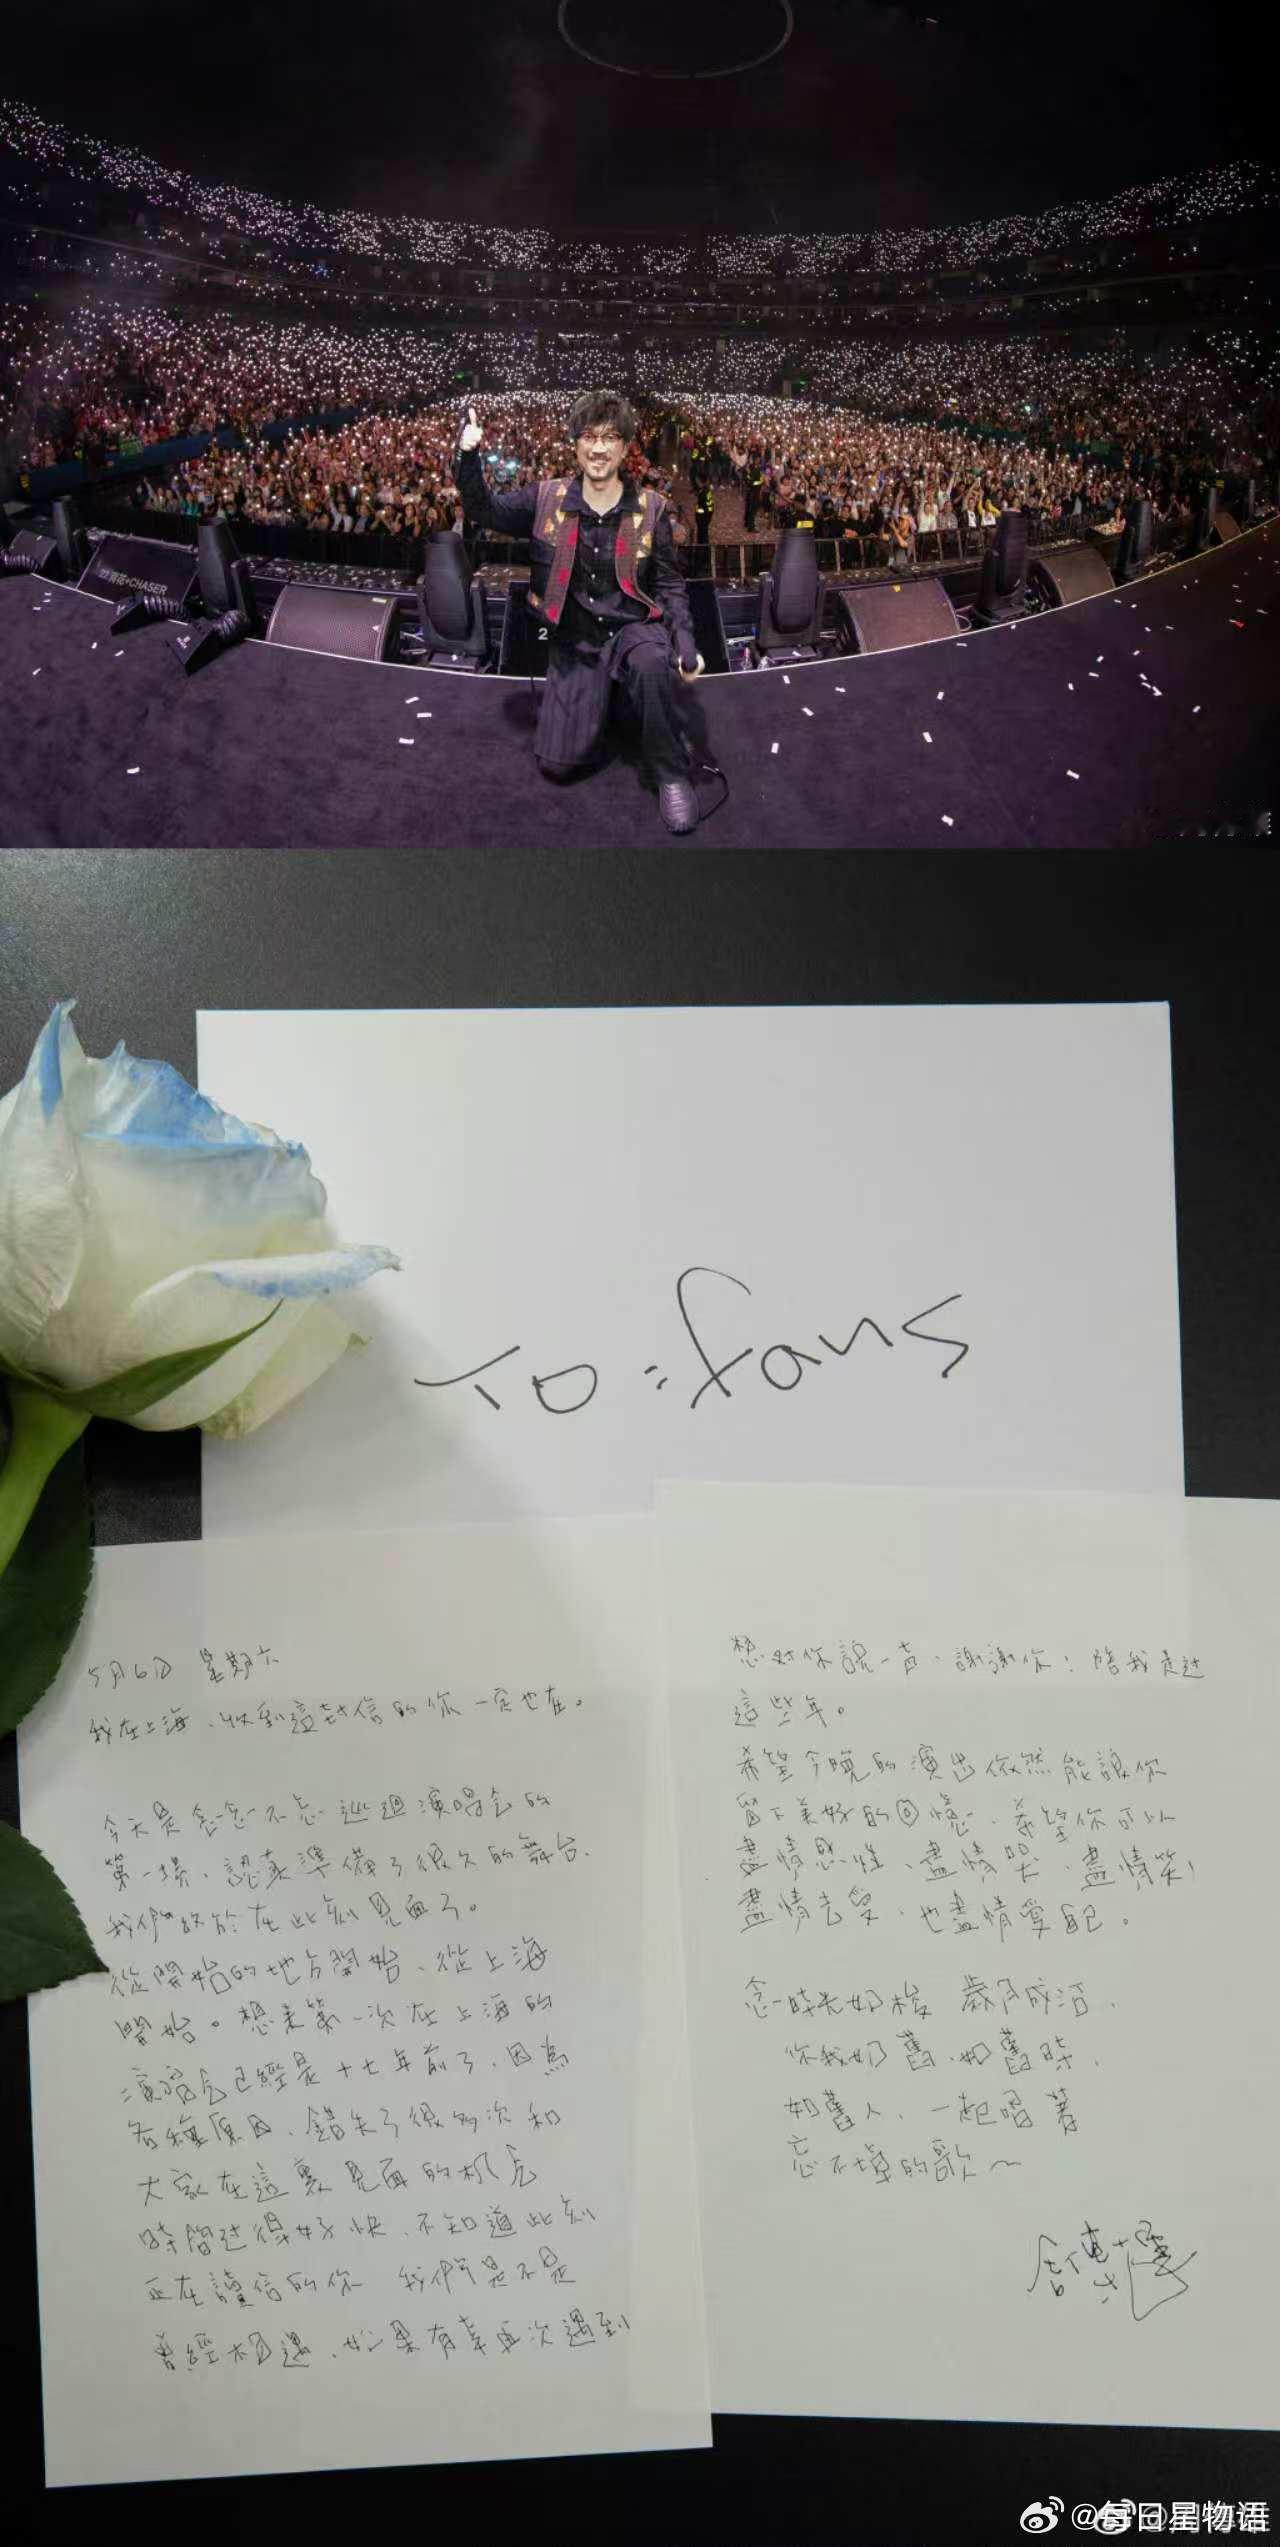 青花+CHASER
2
To:fans
5月6日 星期六
我在上海、收到這封信的你一定也在。
今天是念念不忘巡迴演唱会的
第一場、認真準備了很久的舞台、
我們終於在此刻見面了。
從開始的地方開始、從上海
開始。想来第一次在上海的
演唱会已經是十七年前了、因為
各種原因、錯失了很多次和
大家在這裏見面的机会
時間过得好快、不知道此刻
正在讀信的你 我們是不是
曾經相遇、如果有幸再次遇到
想对你說一声、謝謝你！陪我走过
這些年。
希望今晚的演出依然能讓你
留下美好的回憶、希望你可以
盡情感性、盡情哭、盡情笑！
盡情去愛、也盡情愛自己。
念時光如梭 歲月成活、
你我如舊、如舊時、
如舊人、一起唱著
忘不掉的歌～
@每日星物语